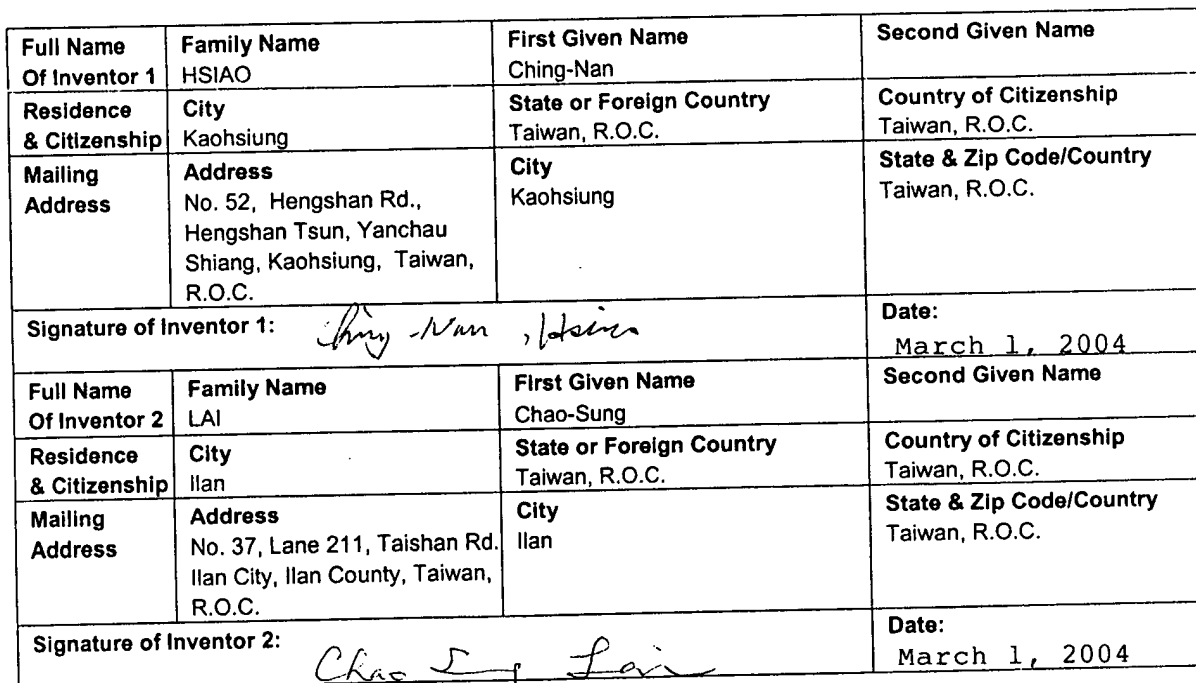 Full Name Of Inventor 1 | Family Name HSIAO | First Given Name Ching-Nan | Second Given Name
Residence & Citizenship | City Kaohsiung | State or Foreign Country Taiwan, R.O.C. | Country of Citizenship Taiwan, R.O.C.
Mailing Address | Address No. 52, Hengshan Rd., Hengshan Tsun, Yanchau Shiang, Kaohsiung, Taiwan, R.O.C. | City Kaohsiung | State & Zip Code/Country Taiwan, R.O.C.
Signature of Inventor 1: Ching-Nan, Hsiao | Date: March 1, 2004
Full Name Of Inventor 2 | Family Name LAI | First Given Name Chao-Sung | Second Given Name
Residence & Citizenship | City Ilan | State or Foreign Country Taiwan, R.O.C. | Country of Citizenship Taiwan, R.O.C.
Mailing Address | Address No. 37, Lane 211, Taishan Rd. Ilan City, Ilan County, Taiwan, R.O.C. | City Ilan | State & Zip Code/Country Taiwan, R.O.C.
Signature of Inventor 2: Chao Sung Lai | Date: March 1, 2004